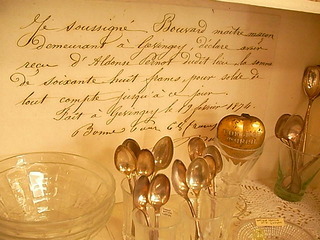 Je soussigné Bouvard maître maçon
Demeurant à Gevingey, déclare avoir
reçu d'Aldonse Vernot dudit lieu la somme
de soixante huit francs, pour solde de
tout compte jusqu'à ce jour
Fait à Gevingey le 19 1896.
Bonne pour 68 francs